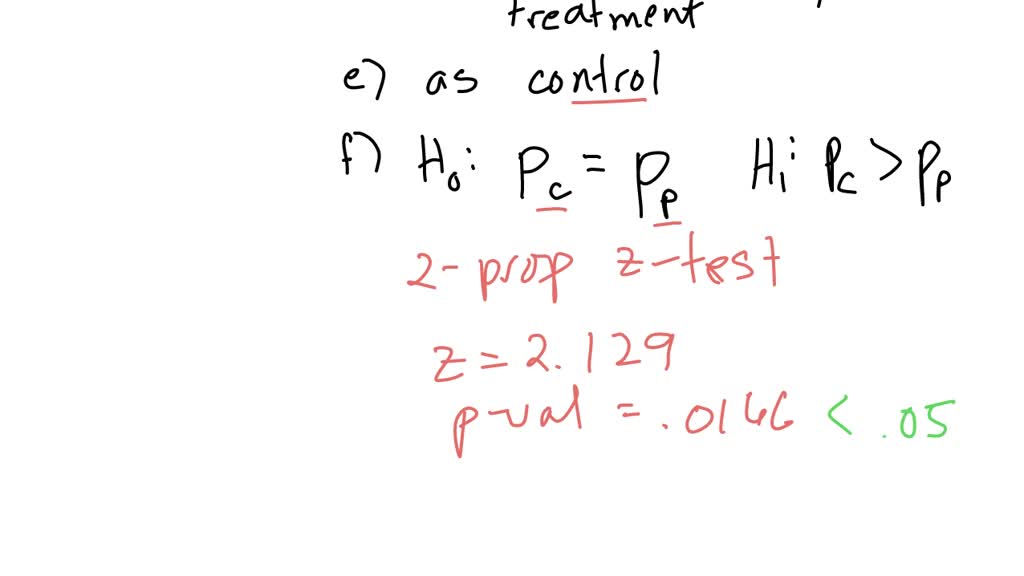 treatment
e) as control
f) H₀: P_c = P_p H₁: P_c > P_p
2-prop z-test
z = 2.129
p-val = .0166 < .05